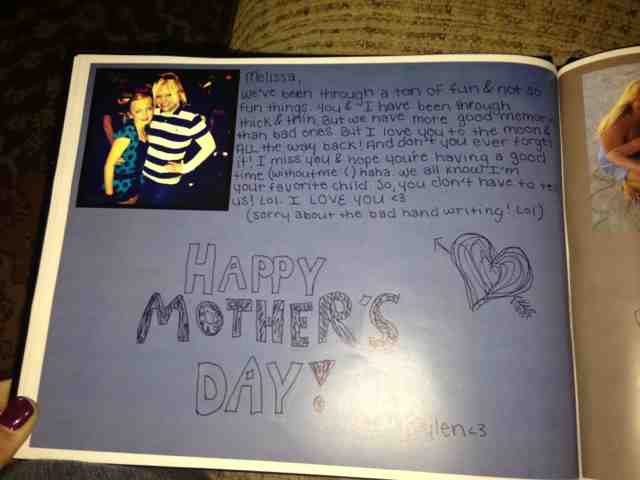 Melissa,
We've been through a ton of fun & not so
fun things. You & I have been through
thick & thin. But we have more good memor
than bad ones. But I love you to the moon &
ALL the way back! And don't you ever forget
it! I miss you & hope you're having a good
time (without me :() haha. we all know I'm
your favorite child. So, you don't have to tell
us! Lol. I LOVE YOU <3
(sorry about the bad hand writing! Lol)
HAPPY
MOTHER'S
DAY!